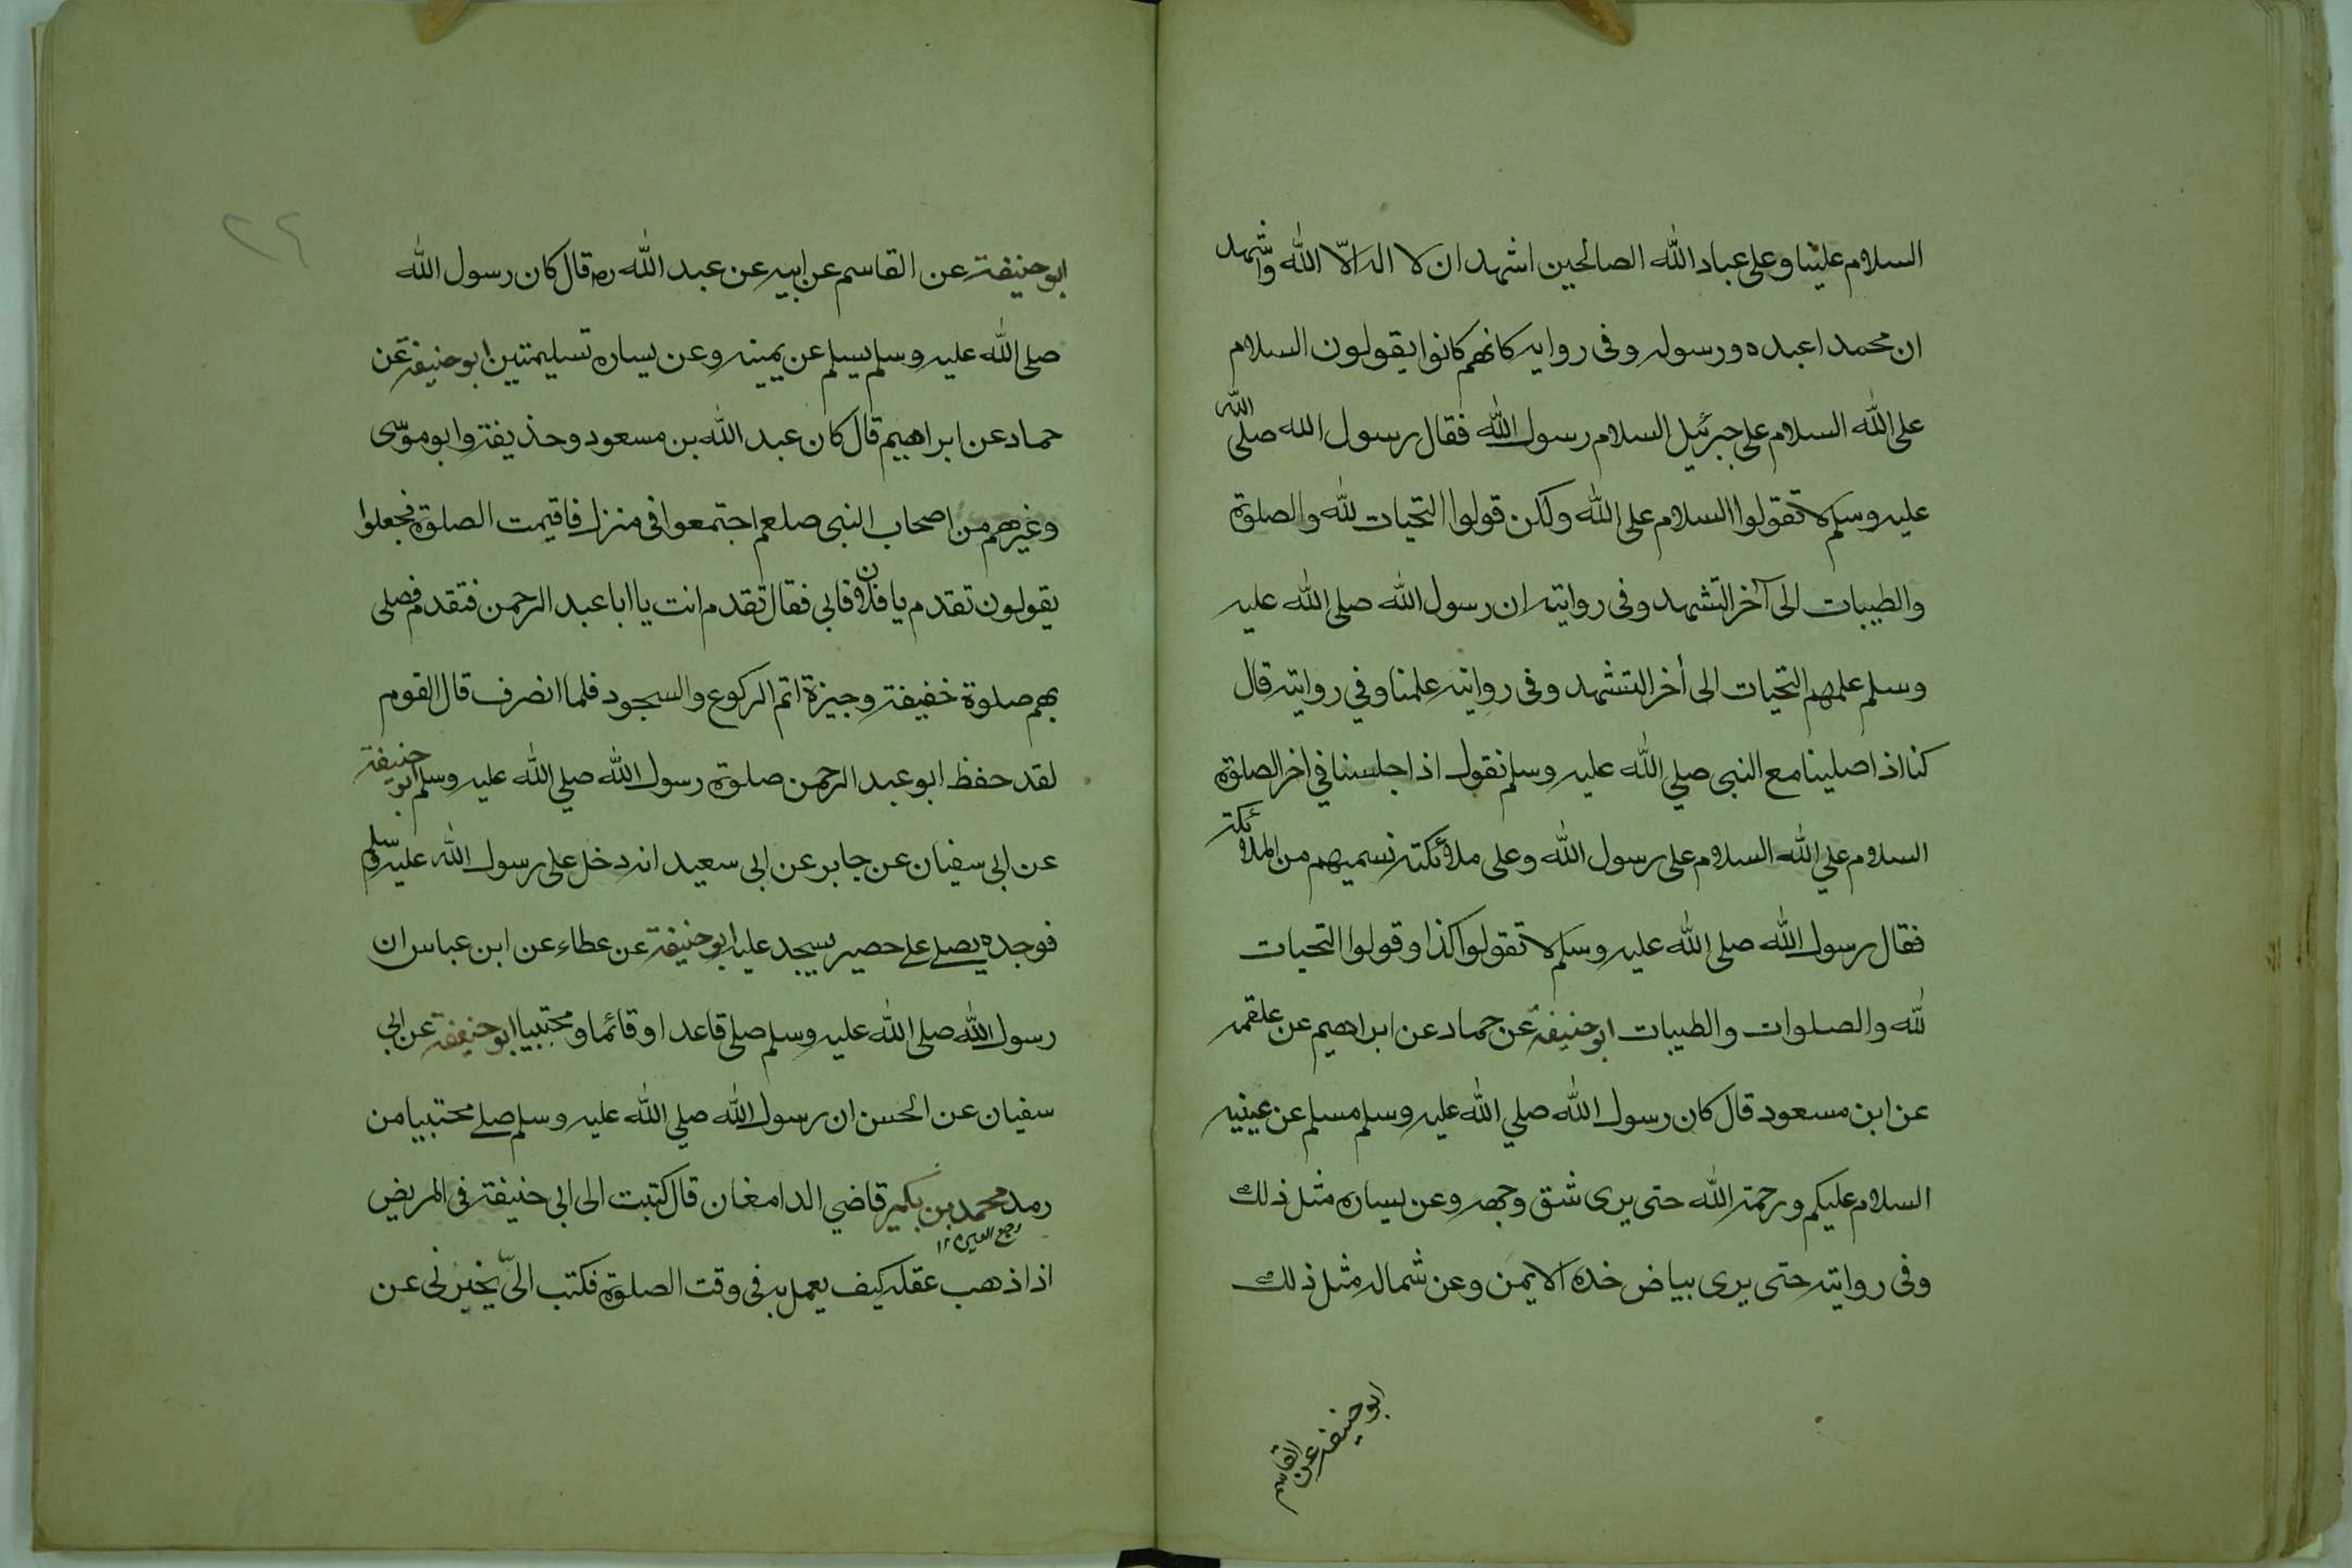 السلام علينا وعلى عباد الله الصالحين اشهد ان لا اله الّا الله واشهد
ان محمدا عبده ورسوله وفى روايه كانهم كانوا يقولون السلام
على الله السلام على جبرئيل السلام رسول الله فقال رسول الله صلى الله
عليه وسلم لا تقولوا السلام على الله ولكن قولوا التحيات لله والصلوة
والطيبات الى آخر التشهد وفى رواية ان رسول الله صلى الله عليه
وسلم علمهم التحيات الى أخر التشهد وفى رواية علمنا وفي رواية قال
كنا اذا صلينا مع النبى صلي الله عليه وسلم نقول اذا جلسنا في اخر الصلوة
السلام علي الله السلام على رسول الله وعلى ملائكته نسميهم من الملائكة
فقال رسول الله صلى الله عليه وسلم لا تقولوا كذا وقولوا التحيات
لله والصلوات والطيبات ابو حنيفة عن حماد عن ابراهيم عن علقمه
عن ابن مسعود قال كان رسول الله صلي الله عليه وسلم مسلم عن يمينيه
السلام عليكم ورحمة الله حتى يرى شق وجهه وعن يساره مثل ذلك
وفى رواية حتى يرى بياض خده الايمن وعن شماله مثل ذلك
ابو حنيفه عن القاسم
٢٤
ابو حنيفة عن القاسم عن ابيه عن عبد الله رض قال كان رسول الله
صلى الله عليه وسلم يسلم عن يمينه وعن يساره تسليمتين ابو حنيفة عن
حماد عن ابراهيم قال كان عبد الله بن مسعود وحذيفة وابو موسى
وغيرهم من اصحاب النبى صلعم اجتمعوا فى منزل فاقيمت الصلوة فجعلوا
يقولون تقدم يا فلان فابى فقال تقدم انت يا ابا عبد الرحمن فتقدم فصلى
بهم صلوة خفيفة وجيزة اتم الركوع والسجود فلما انصرف قال القوم
لقد حفظ ابو عبد الرحمن صلوة رسول الله صلي الله عليه وسلم ابو حنيفة
عن ابى سفيان عن جابر عن ابى سعيد انه دخل على رسول الله عليه وسلم
فوجده يصلے على حصير يسجد عليه ابو حنيفة عن عطاء عن ابن عباس ان
رسول الله صلى الله عليه وسلم صلى قاعدا وقائما ومحتبيا ابو حنيفة عن ابى
سفيان عن الحسن ان رسول الله صلي الله عليه وسلم صلے محتبيا من
رمد محمد بن بكير قاضي الدامغان قال كتبت الى ابي حنيفة فى المريض
وجع العين ١٢
اذا ذهب عقله كيف يعمل به فى وقت الصلوة فكتب الىّ يخبرنى عن